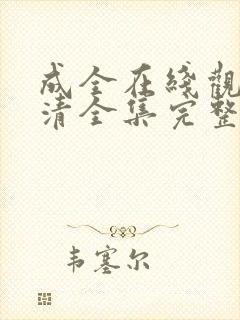 成全在綫觀
清全集完整
韦塞尔